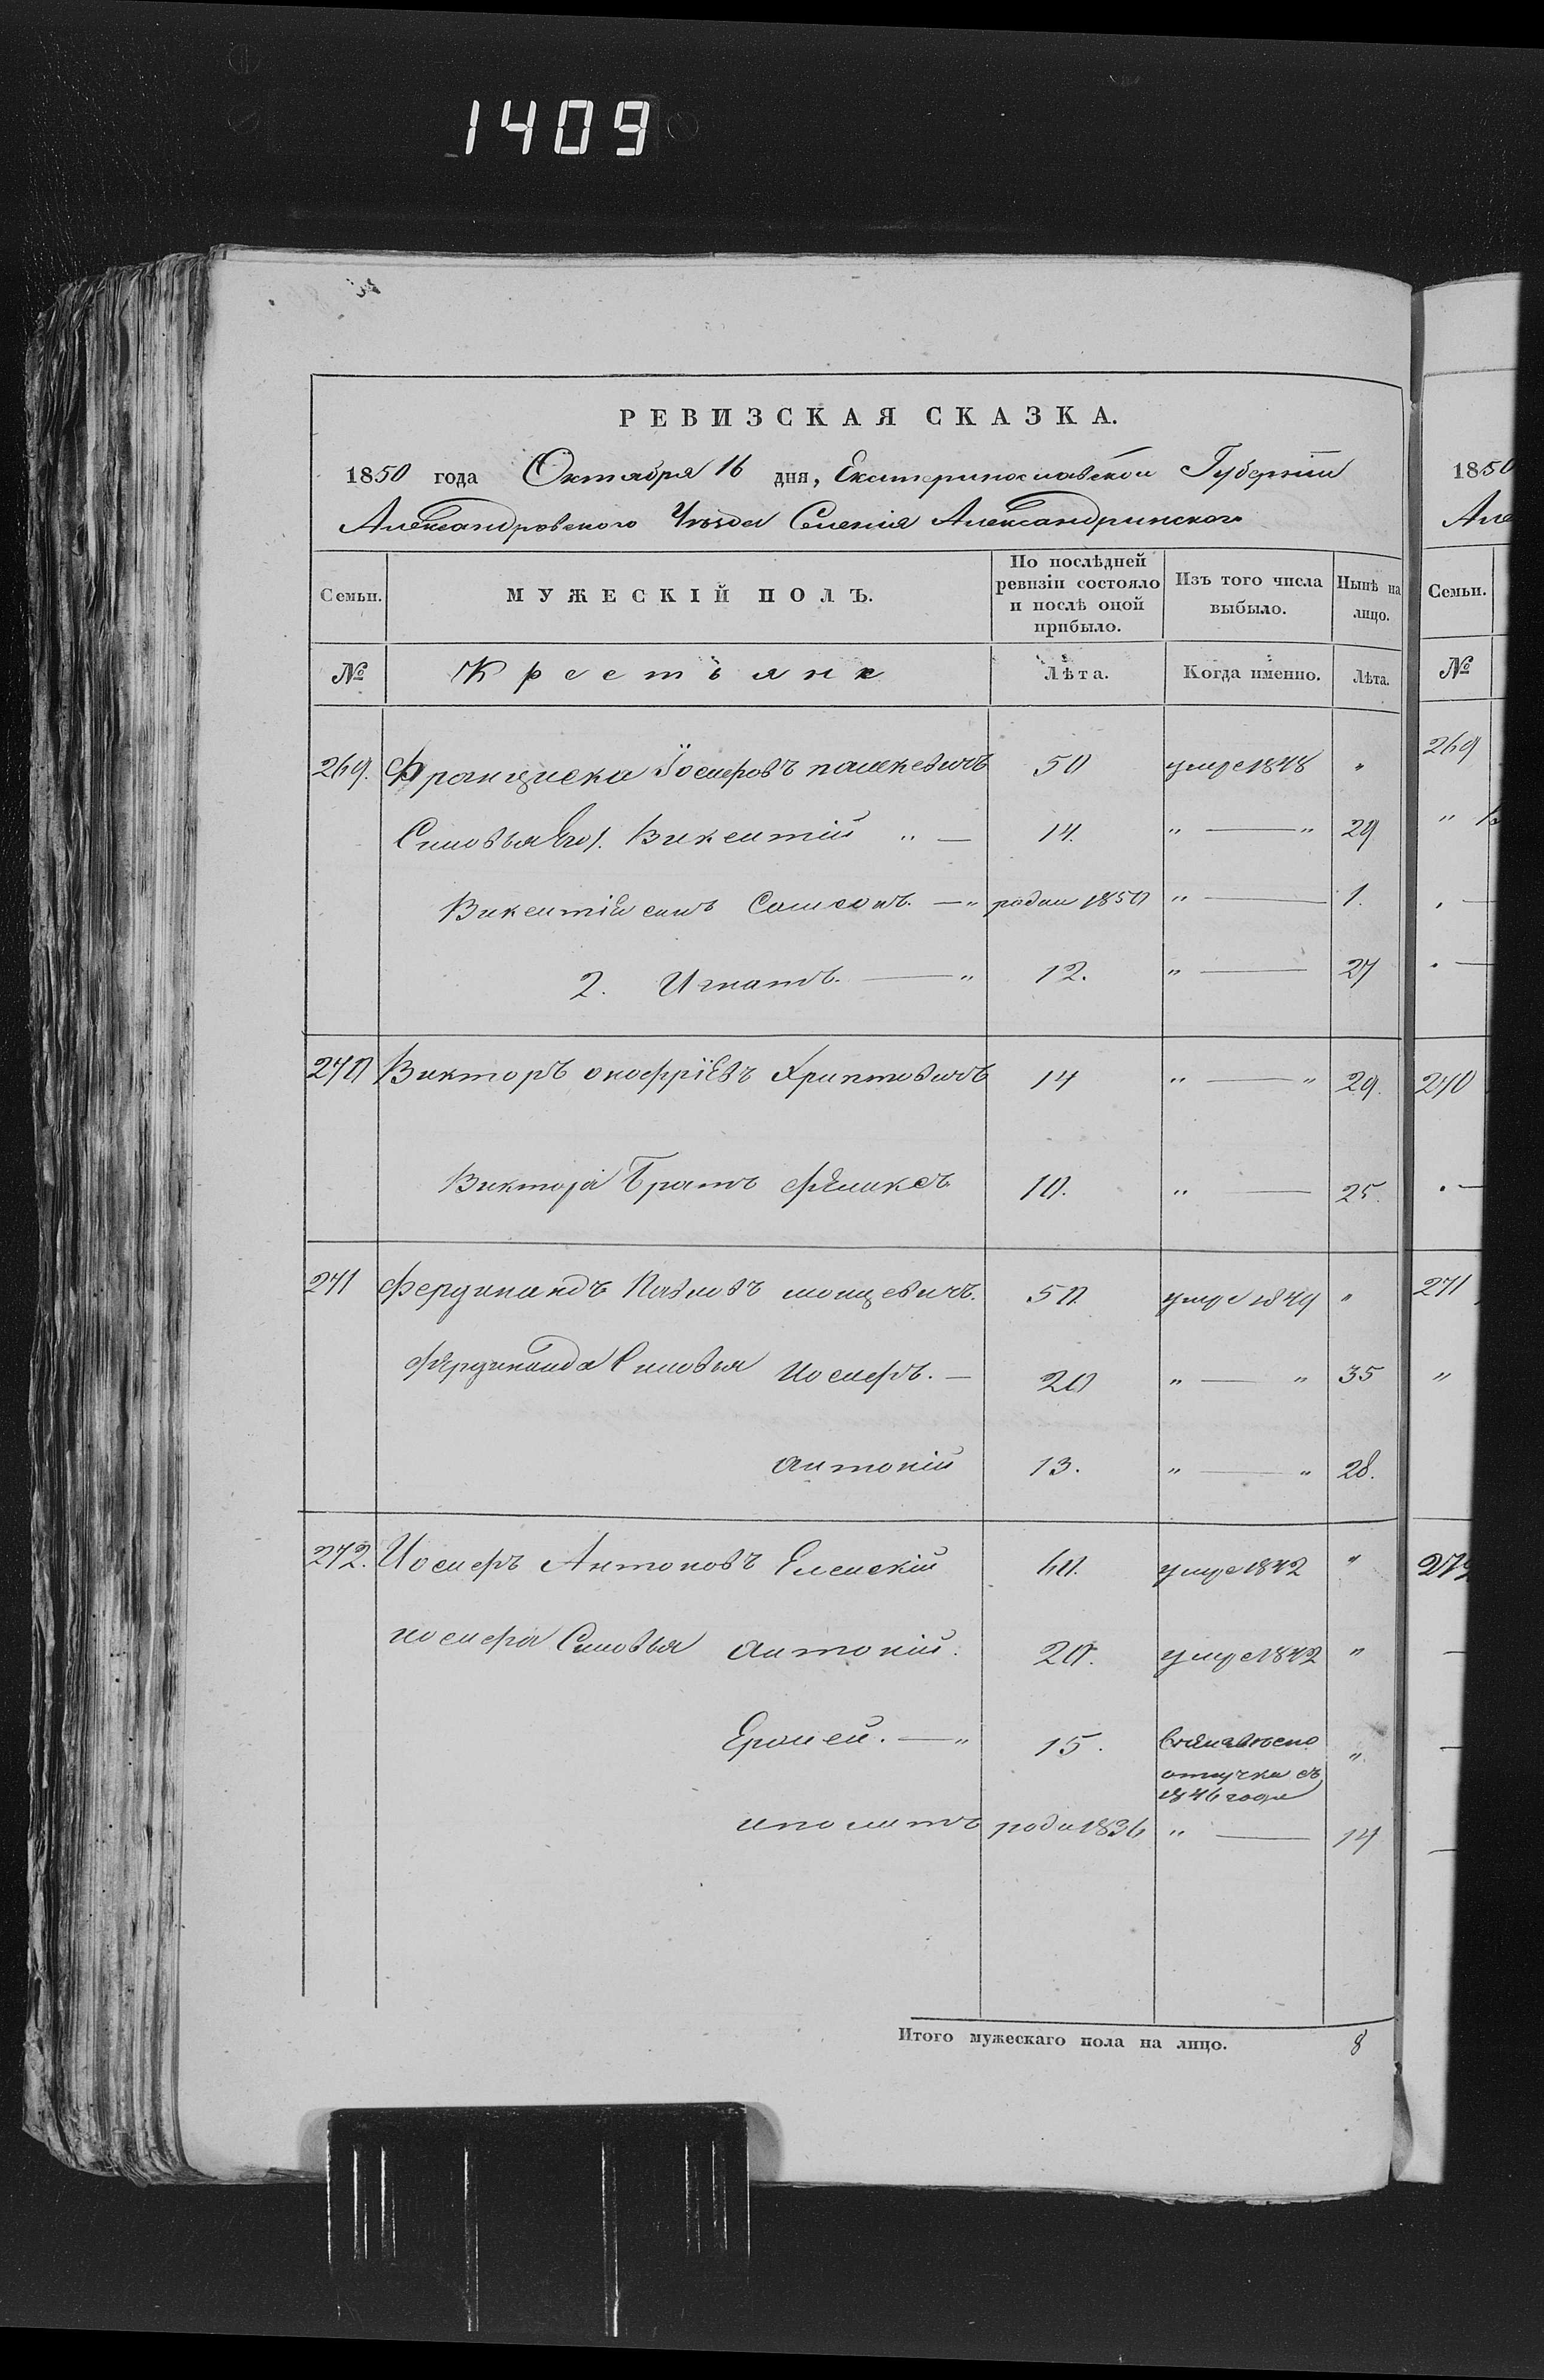 1409
РЕВИЗСКАЯ СКАЗКА.
1850 года Октября 16 дня, Екатеринославской Губернии
Александровского Уѣзда Селенія Александринского
Семьи. МУЖЕСКІЙ ПОЛЪ. По послѣдней ревизіи состояло и послѣ оной прибыло. Изъ того числа выбыло. Нынѣ на лицо.
№ Крестьяне Лѣта. Когда именно. Лѣта.
269. Францишка Іосифовъ пашкевичъ 50 умре 1848 "
Сыновья Его 1. Викентій " — 14. " — " 29
Викентія сынъ Самсонъ. — " родил 1850 " — 1.
2. Игнатъ. — " 12. " — 27
270 Викторъ онофріевъ Хрптовичъ 14 " — " 29.
Виктора Братъ феликсъ 10. " — 25.
271 Фердинандъ Павловъ 50. умре 1849 "
Фердинанда Сыновья Иосифъ. — 20 " — " 35
антоній 13. " — " 28.
272. Иосифъ Антоновъ Еленскій 60. умре 1842 "
иосифа Сыновья антоній. 20. умре 1842 "
Ермей. — " 15. отлучки съ 1846 года "
иполитъ роди 1836 " — 14
Итого мужескаго пола на лицо. 8
1850
Але
Семьи.
№
269
"
270
271
"
272